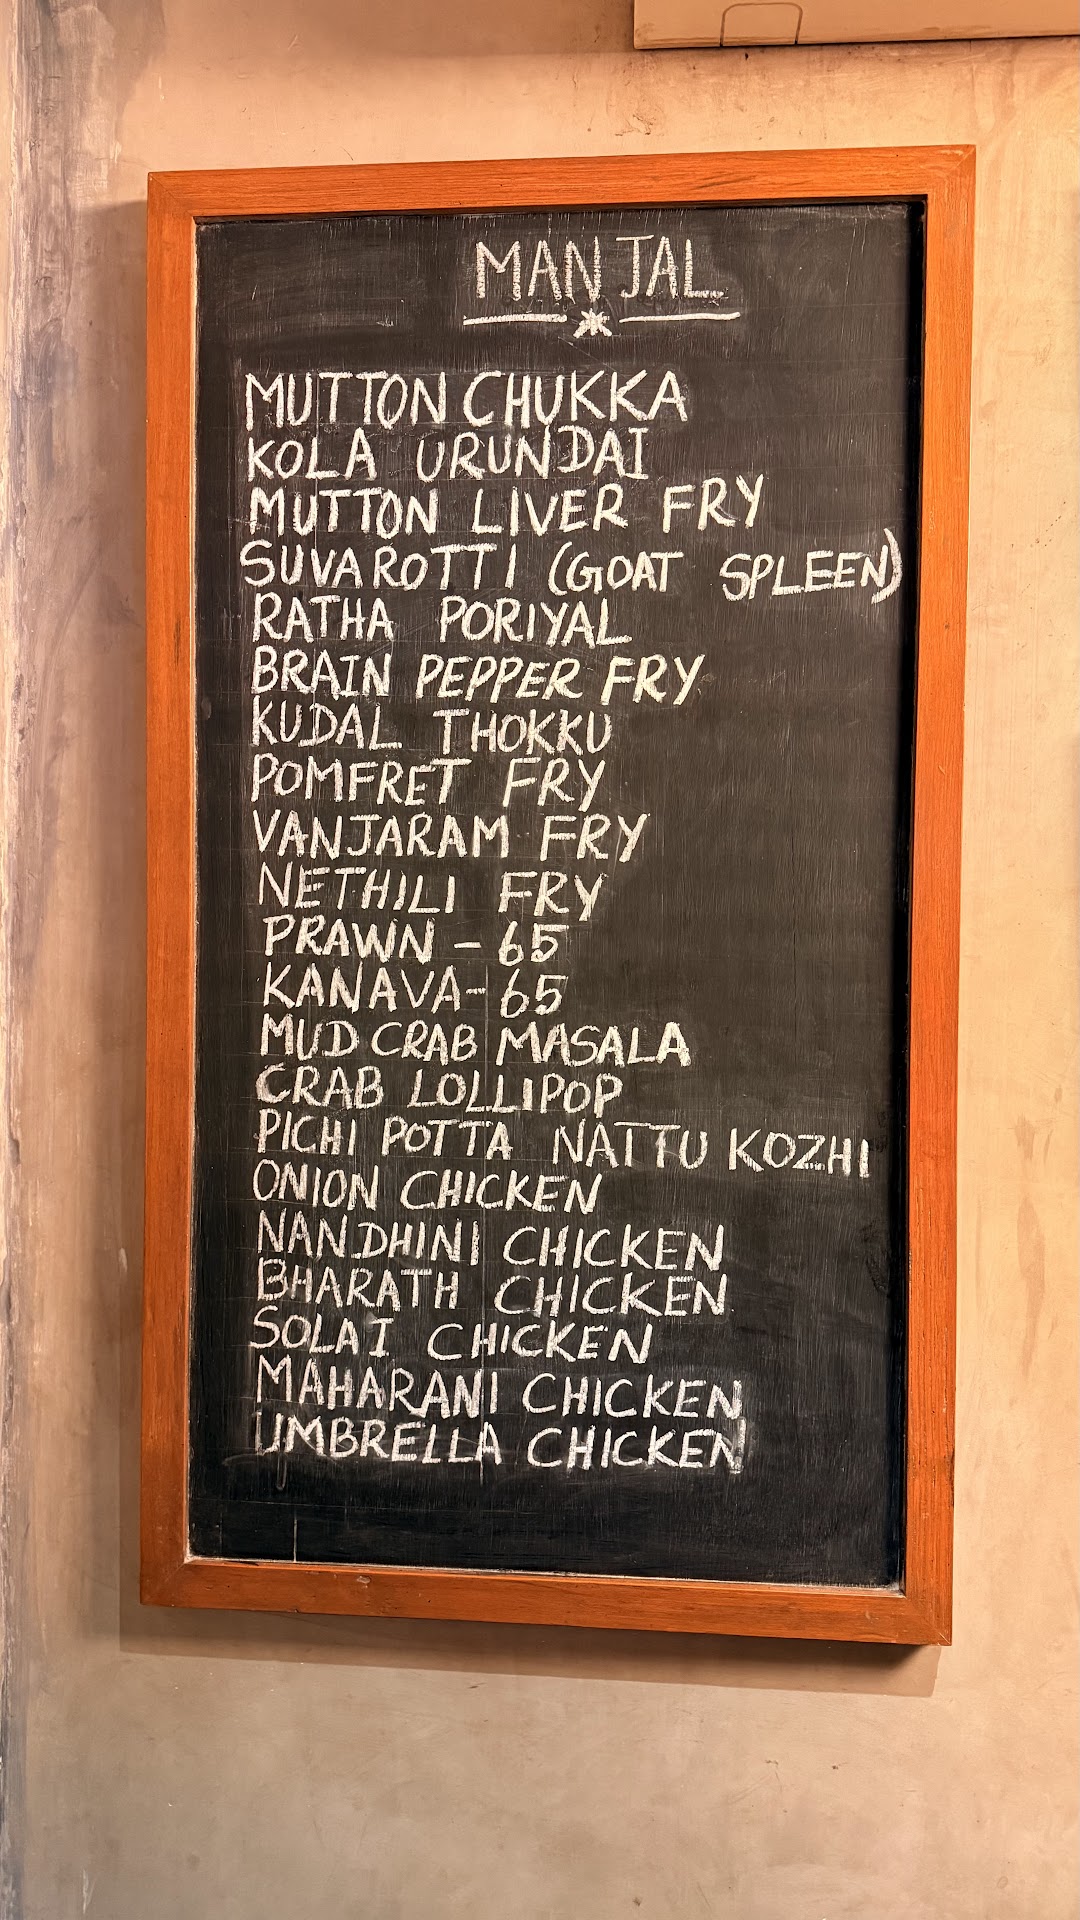 MANJAL
MUTTON CHUKKA
KOLA URUNDAI
MUTTON LIVER FRY
SUVAROTTI (GOAT SPLEEN)
RATHA PORIYAL
BRAIN PEPPER FRY
KUDAL THOKKU
POMFRET FRY
VANJARAM FRY
NETHILI FRY
PRAWN - 65
KANAVA - 65
MUD CRAB MASALA
CRAB LOLLIPOP
PICHI POTTA NATTU KOZHI
ONION CHICKEN
NANDHINI CHICKEN
BHARATH CHICKEN
SOLAI CHICKEN
MAHARANI CHICKEN
UMBRELLA CHICKEN